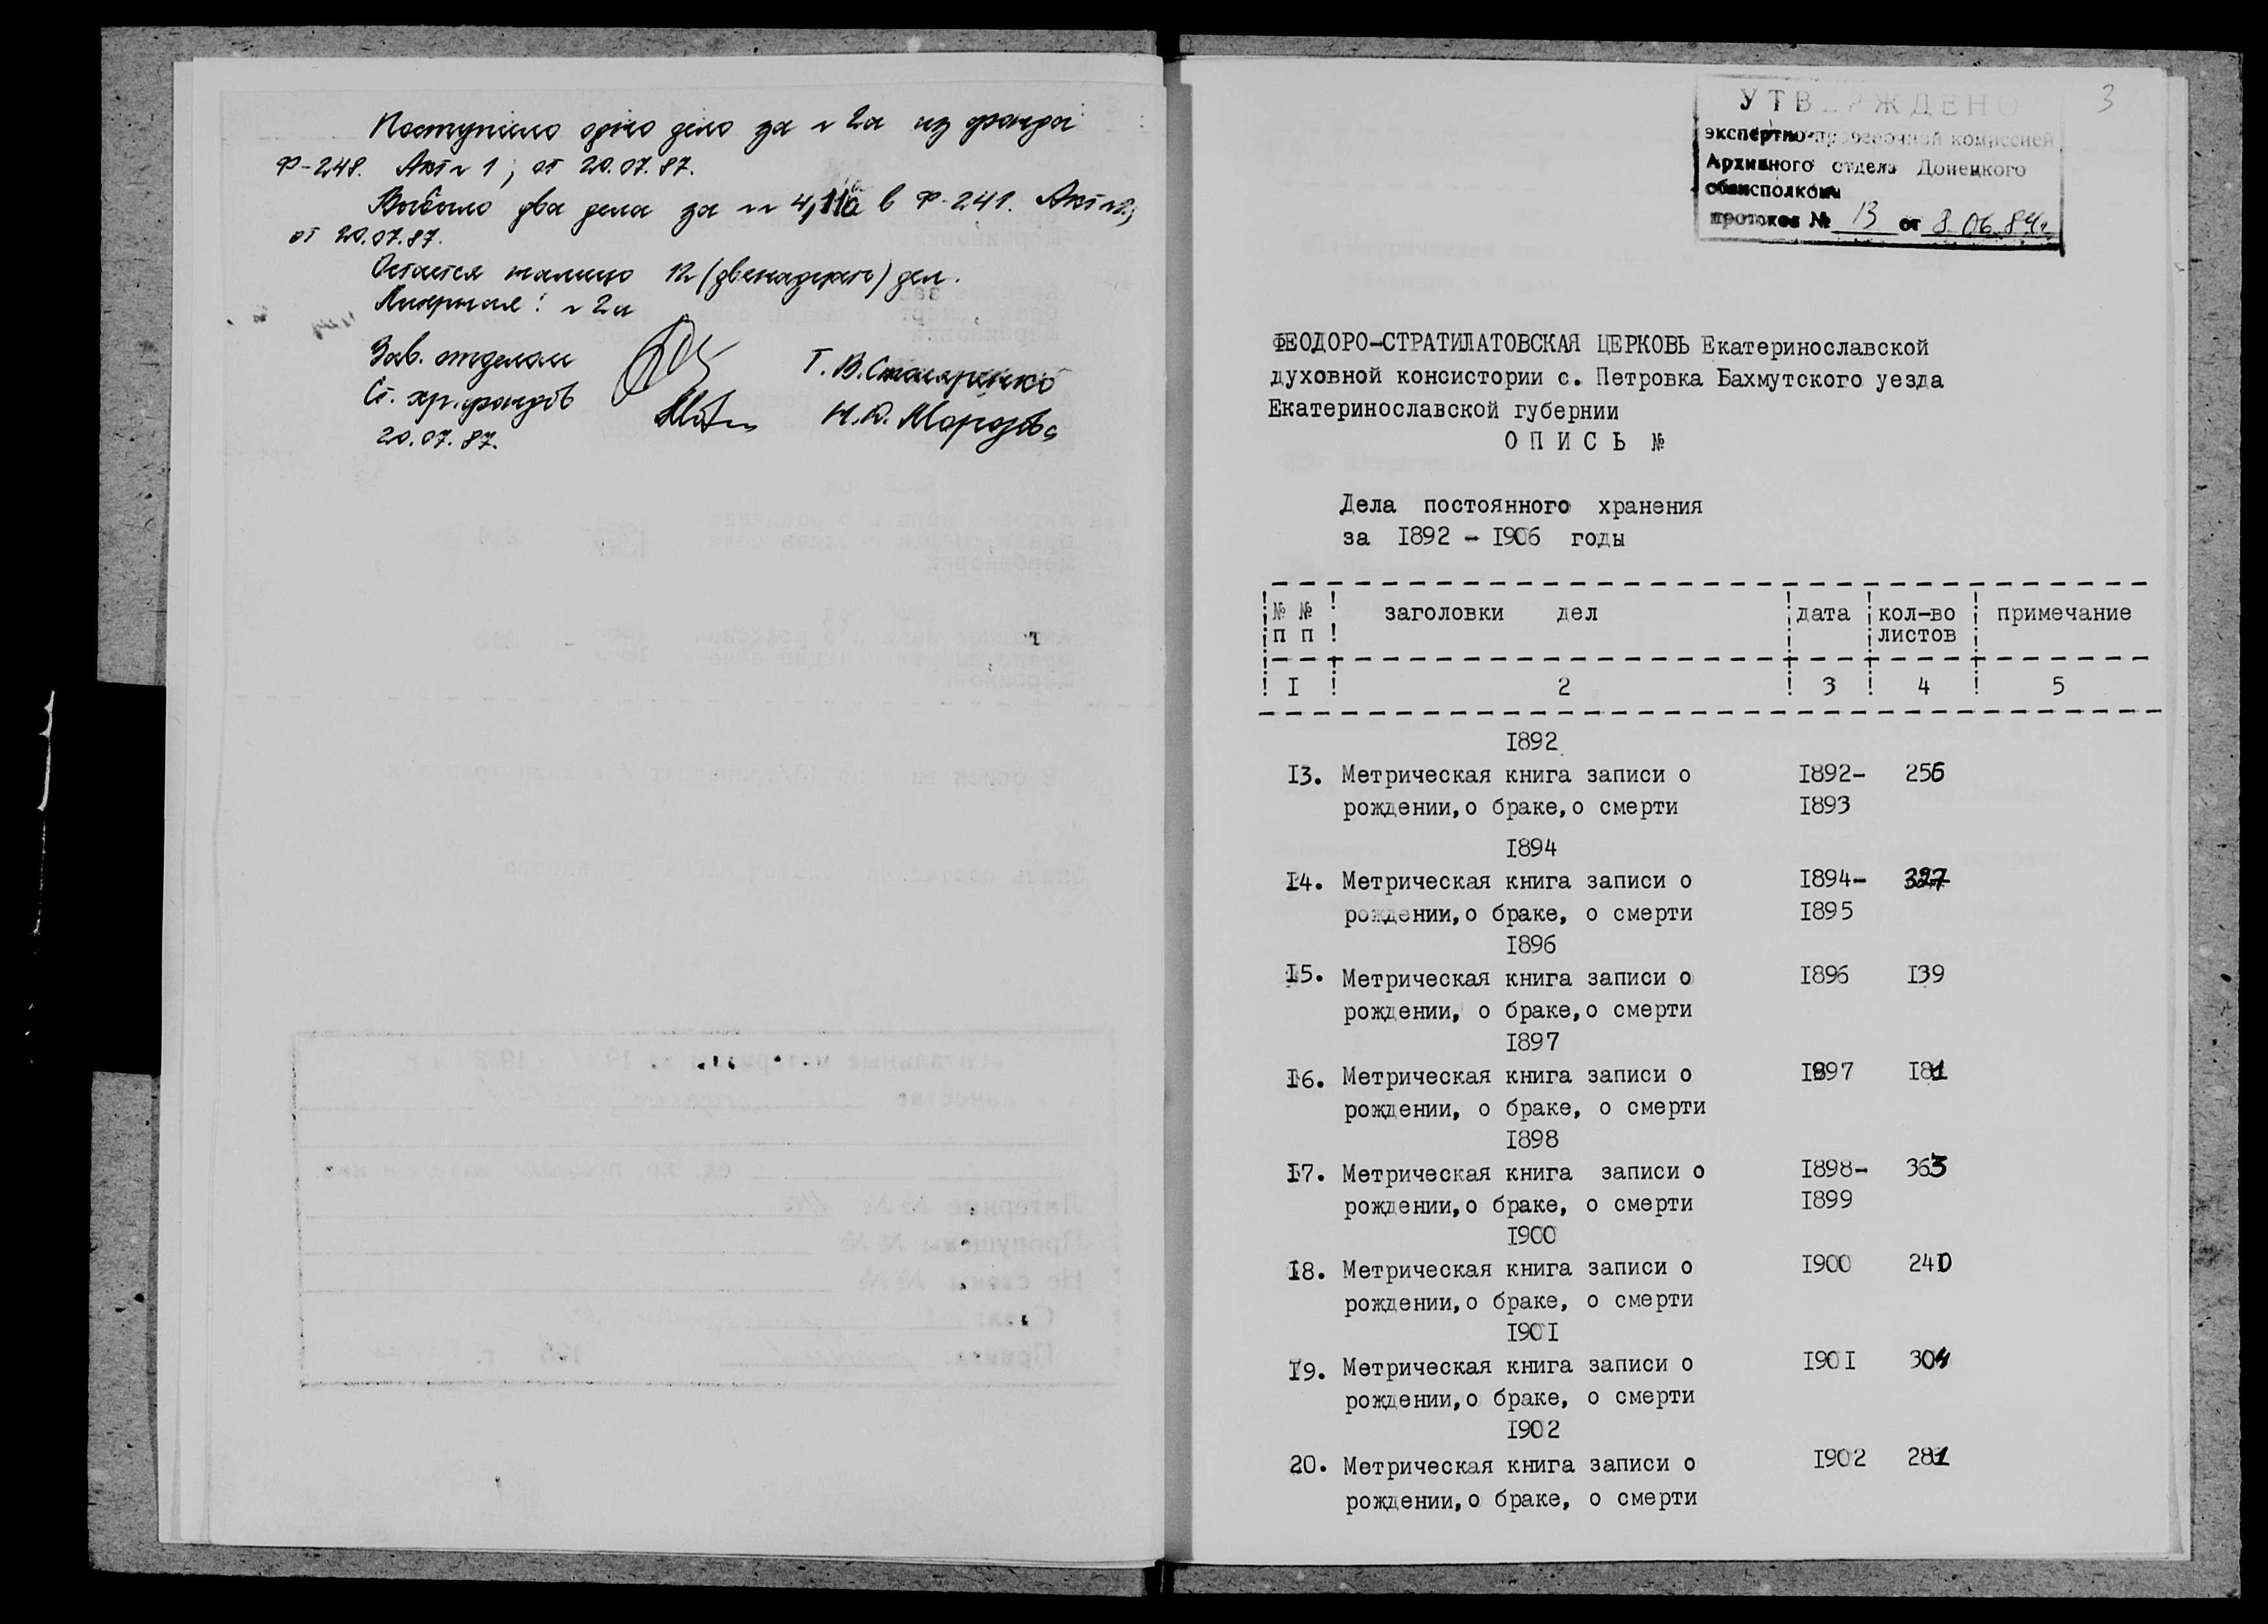 Поступило одно дело за № 2а из фонда
Ф-248. Акт № 1, от 20.07.87.
Выбыло два дела за №№ 4, 11а в Ф-241. Акт №2,
от 20.07.87.
Остается налицо 12 (двенадцать) дел.
Литерные: № 2а
Зав. отделом Т.В. Столяренко
Ст. хр. фондов Н.Ю. Морозова
20.07.87.
3
УТВЕРЖДЕНО
экспертно-проверочной комиссией
Архивного отдела Донецкого
облисполкома
протокол № 13 от 8.06.84г.
ФЕОДОРО-СТРАТИЛАТОВСКАЯ ЦЕРКОВЬ Екатеринославской
духовной консистории с. Петровка Бахмутского уезда
Екатеринославской губернии
ОПИСЬ №
Дела постоянного хранения
за I892 - I906 годы
№ № ! заголовки дел ! дата ! кол-во ! примечание
п п ! листов
! I ! 2 ! 3 ! 4 ! 5
I892
I3. Метрическая книга записи о I892- 256
рождении, о браке, о смерти I893
I894
I4. Метрическая книга записи о I894- 327
рождении, о браке, о смерти I895
I896
I5. Метрическая книга записи о I896 I39
рождении, о браке, о смерти
I897
I6. Метрическая книга записи о I897 I81
рождении, о браке, о смерти
I898
I7. Метрическая книга записи о I898- 363
рождении, о браке, о смерти I899
I900
I8. Метрическая книга записи о I900 240
рождении, о браке, о смерти
I90I
I9. Метрическая книга записи о I90I 304
рождении, о браке, о смерти
I902
20. Метрическая книга записи о I902 281
рождении, о браке, о смерти